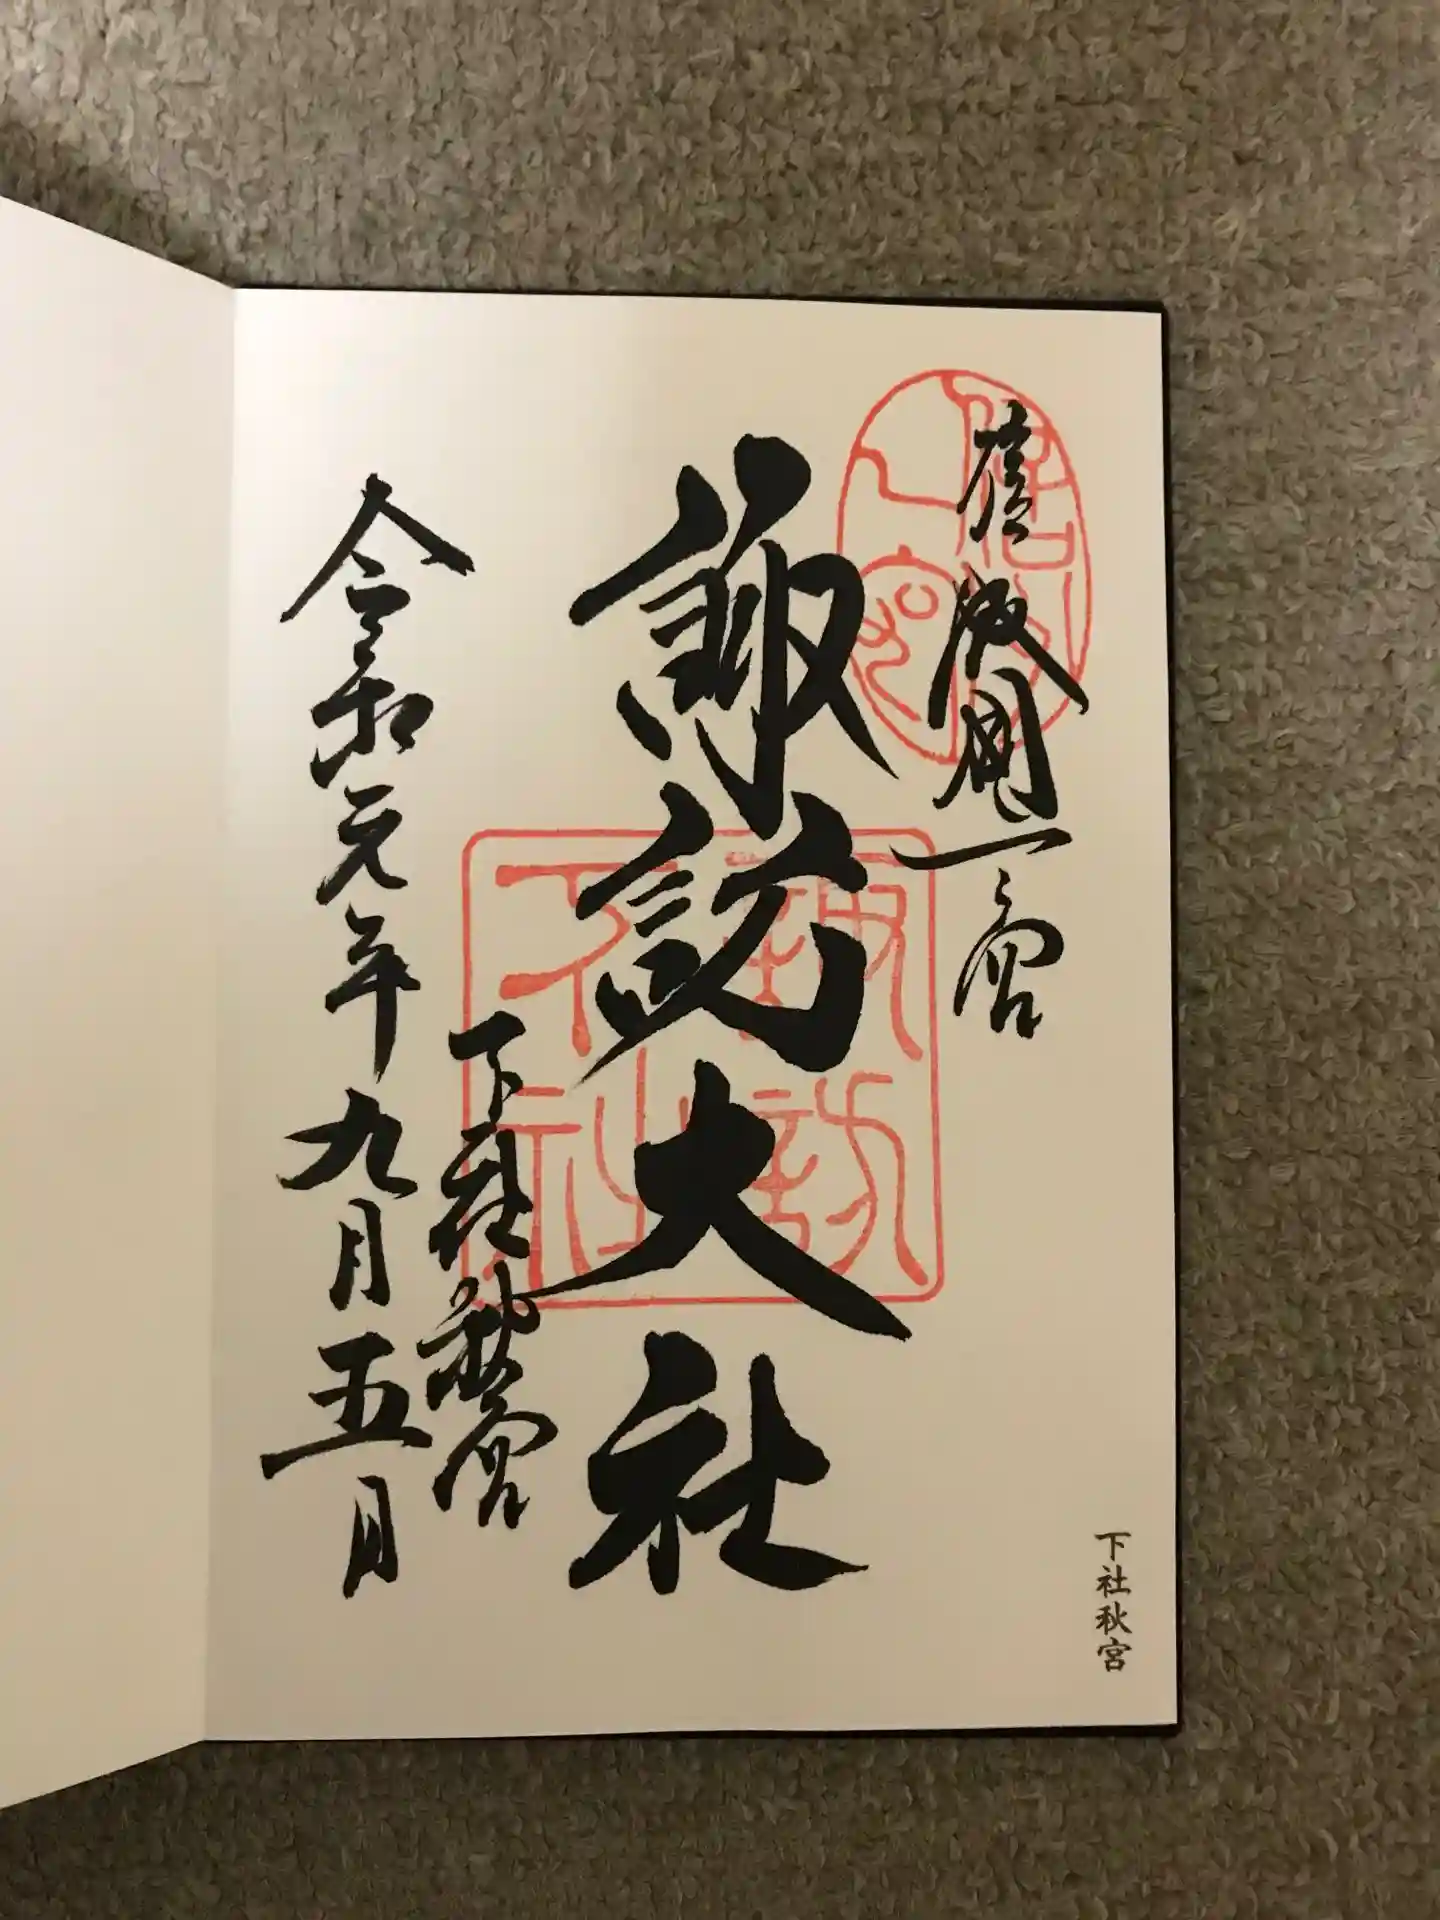 信濃國一宮
諏訪大社
下社秋宮
令和元年九月五日
下社秋宮
諏訪
下社